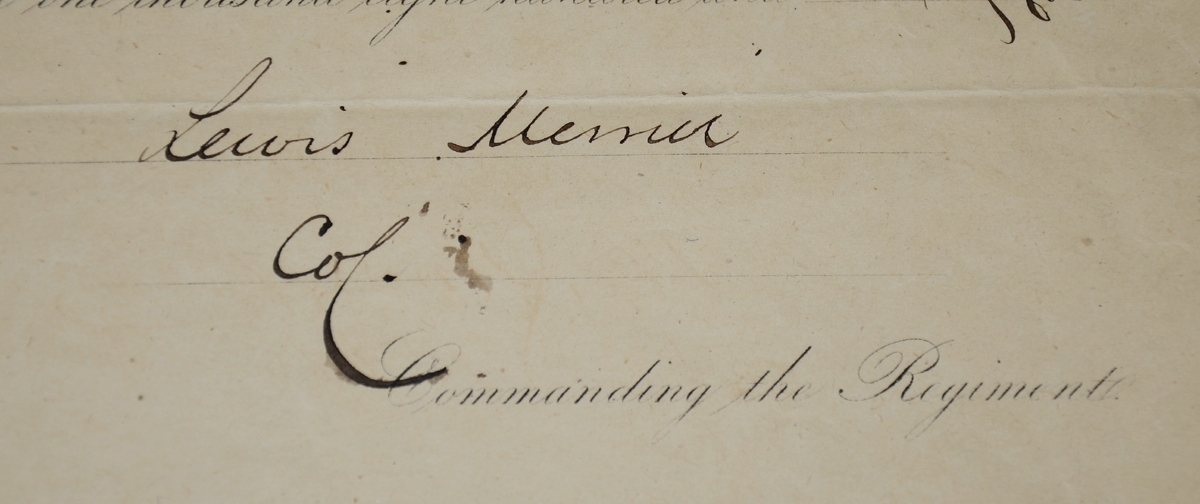 one thousand eight hundred and
Lewis Merrill
Col.
Commanding the Regiment.